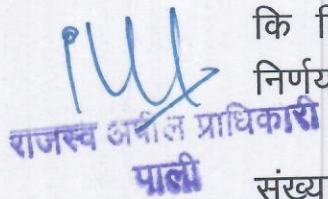 कि
निर्णय
राजस्व अपील प्राधिकारी
पाली
संख्या